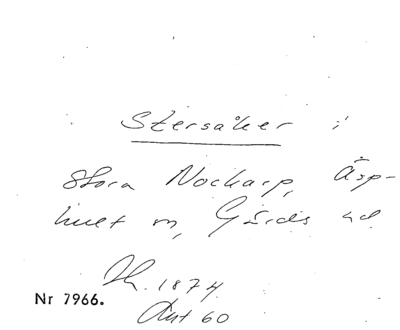 Stersåker i
Stora Nockarp, Äsp-
hult sn, Gärds hd
Th. 1874
Ant 60
Nr 7966.